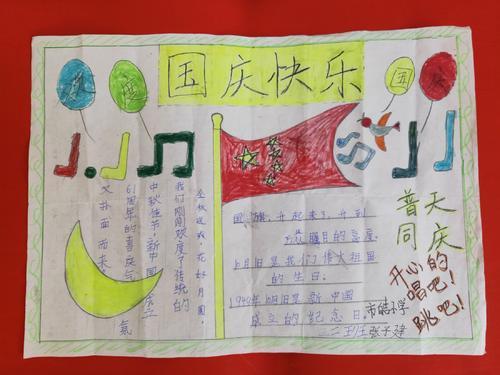 国庆快乐
欢
度
国
庆
金秋送爽,花好月圆,
我们刚刚欢度了传统的
中秋佳节,新中国成立
61周年的喜庆气氛
又扑面而来
国旗升起来了,升到
10月1日是我们伟大祖国
的生日。
1949年10月1日是新中国
成立的纪念日。
普天
同庆
开心的
唱吧!
跳吧!
张子建